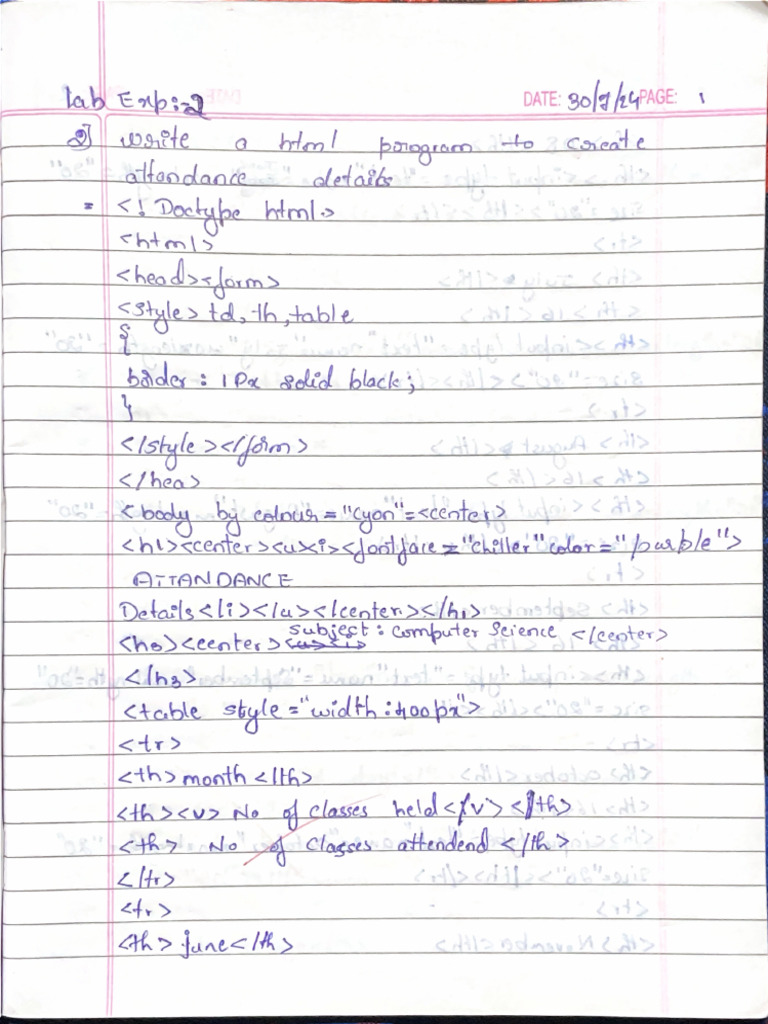 Lab Exp:-2 DATE: 30/7/24 PAGE: 1
2] write a html program to create
attandance details
= <! Doctype html.>
<html>
<head><form>
<style> td, th, table
{
border : 1Px solid black;
}
</style></form>
</hea>
<body by colour = "cyon"=<center>
<h1><center><u><i><font face = "chiller" color = "purple">
ATTANDANCE
Details<li></u></center></h1>
<h3><center> subject : computer science </center>
</h3>
<table style="width:400px">
<tr>
<th> month </th>
<th><v> No of classes held </v> </th>
<th> No of Classes attendend </th>
</tr>
<tr>
<th> june </th>